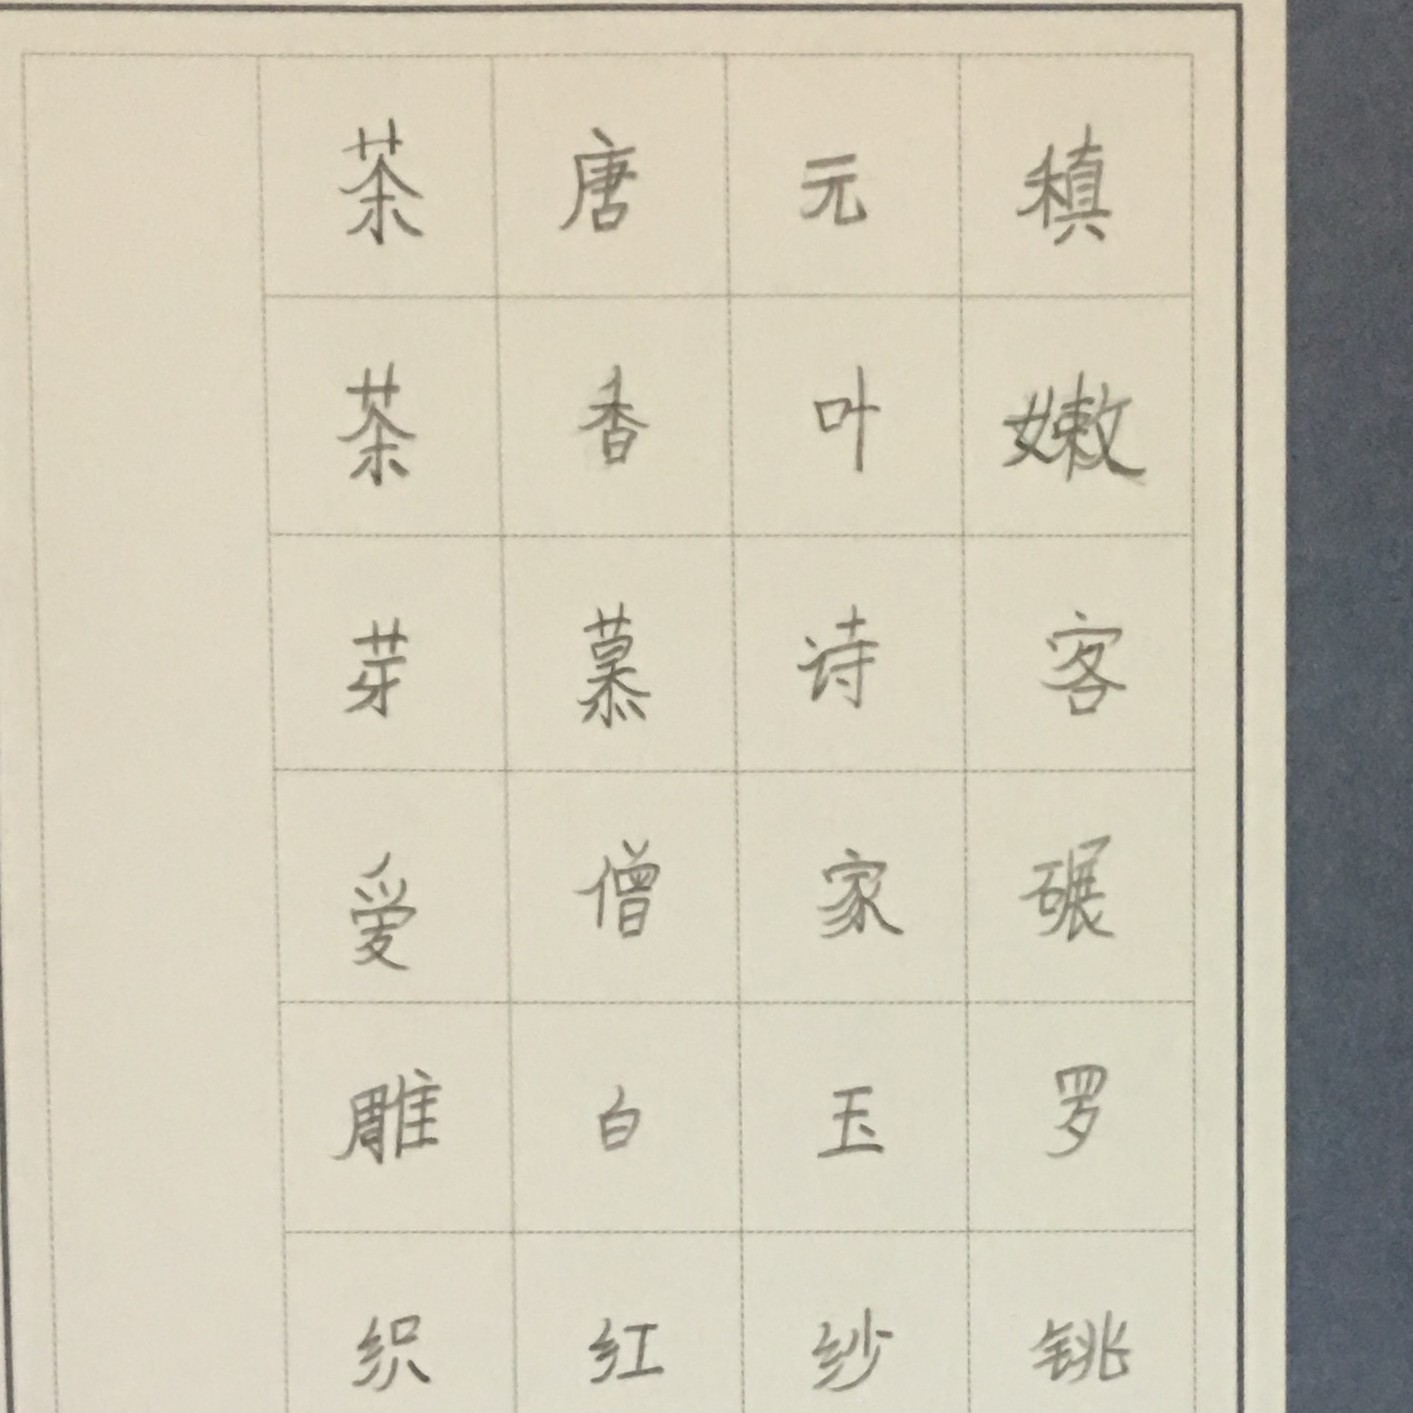 茶唐元稹
茶香叶嫩
芽慕诗客
爱僧家碾
雕白玉罗
织红纱铫